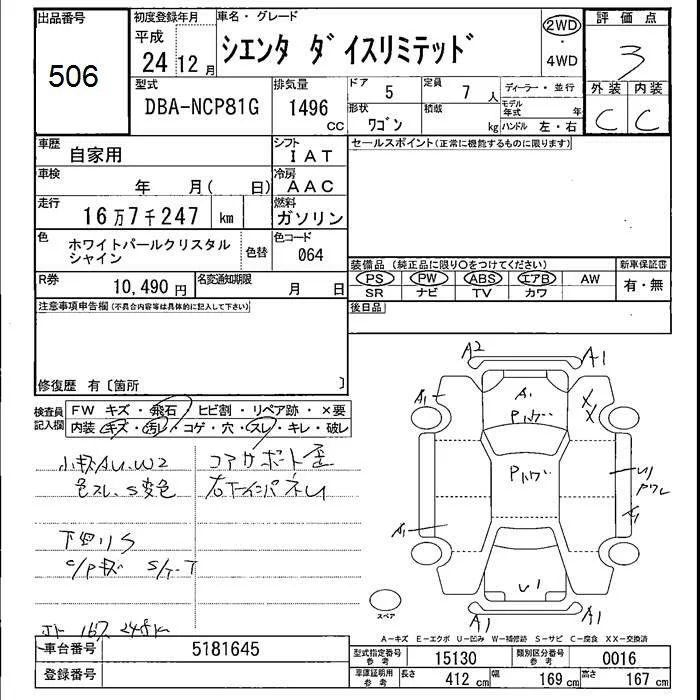 出品番号
506
初度登録年月
平成
24 12月
車名・グレード
シエンタ ダイスリミテッド
2WD
・
4WD
評価点
3
外装 内装
C C
型式
DBA-NCP81G
排気量
1496
cc
ドア 5
定員 7 人
形状 ワゴン
積載 kg
ディーラー・並行
モデル年式 年
ハンドル 左・右
車歴 自家用
シフト IAT
車検 年 月( 日)
冷房 AAC
走行 16万7千247 km
燃料 ガソリン
色 ホワイトパールクリスタルシャイン
色替
色コード 064
R券 10,490円
名変通知期限 月 日
セールスポイント(正常に機能するものに限ります)
装備品 (純正品に限り○をつけてください)
PS PW ABS エアB AW
SR ナビ TV カワ
新車保証書
有・無
後日品
注意事項申告欄(不具合内容等は具体的に記入して下さい)
修復歴 有〔箇所 〕
検査員記入欄
FW キズ・飛石・ヒビ割・リペア跡・×要
内装 キズ・汚レ・コゲ・穴・スレ・キレ・破レ
小キズAU.W2
色スレ.S変色
下回りS
C/Pキズ
コアサポート歪
A2 A1
A1
A1
Pハゲ
X
X
Pハゲ
U1
Pワレ
A1
U1
A1 A1
スペア
A－キズ E－エクボ U－凹み W－補修跡 S－サビ C－腐食 XX－交換済
車台番号 5181645
登録番号
型式指定番号 参考 15130
類別区分番号 参考 0016
車庫証明用 参考 長さ 412cm 幅 169cm 高さ 167cm